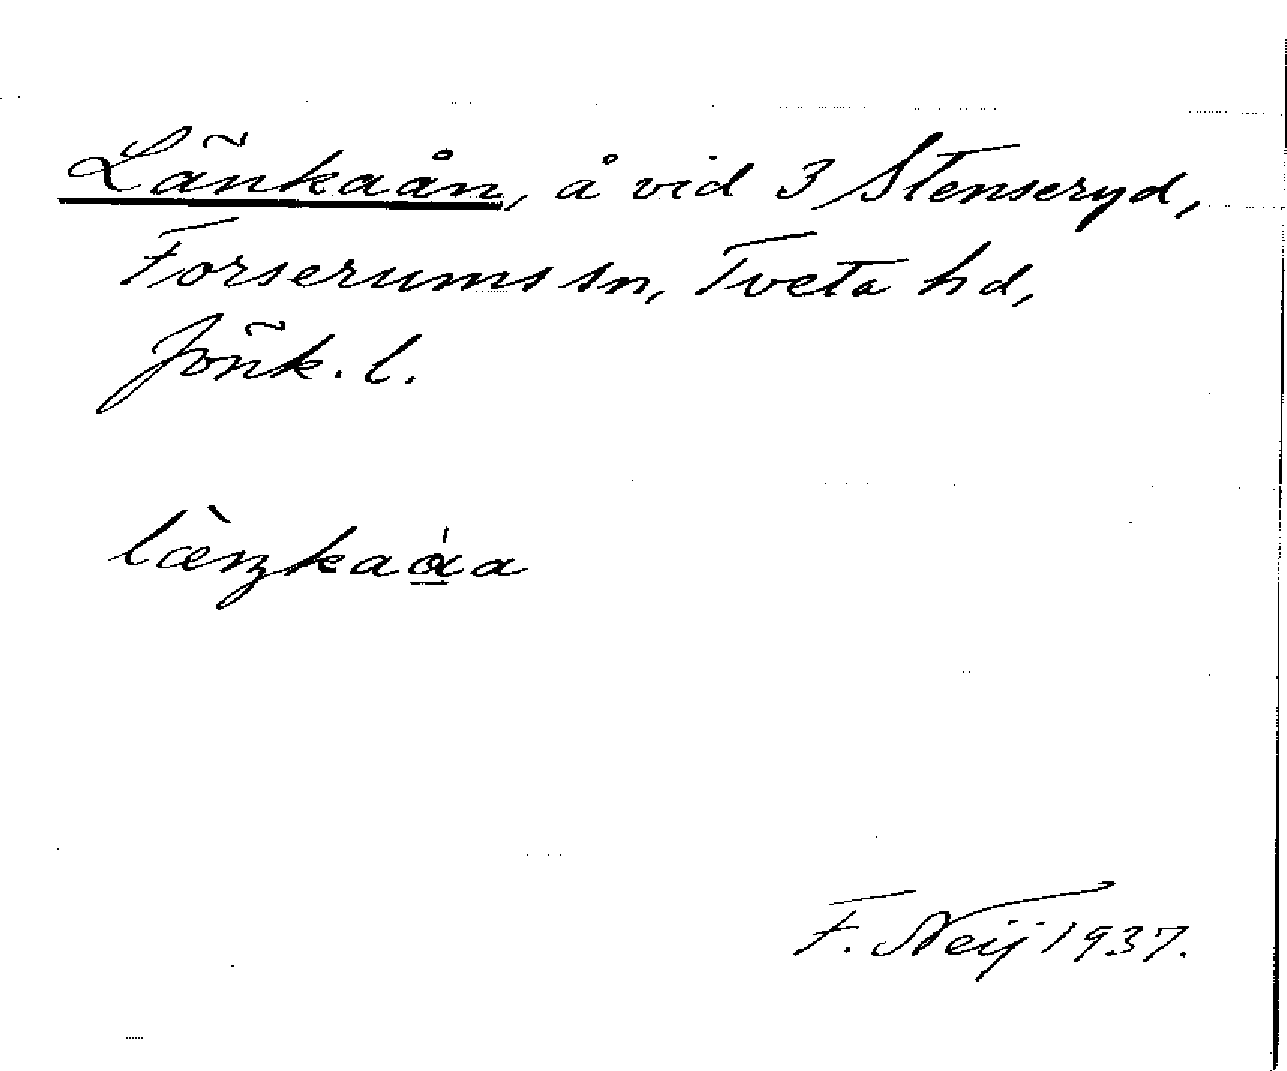 Länkaån, å vid 3 Stenseryd,
Forserums sn, Tveta hd,
Jönk. l.
læ̀ŋkaɑ́a
F. Neij 1937.